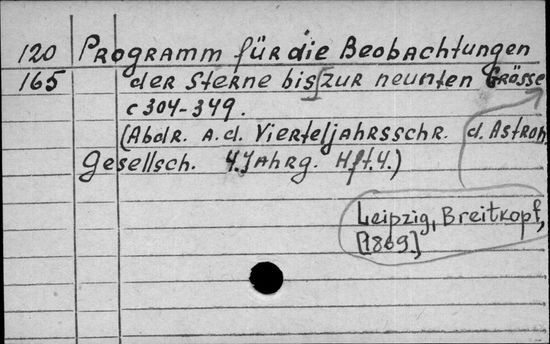 120 Programm für die Beobachtungen
165 der Sterne bis zur neunten Grösse
c 304-349.
(Abdr. a.d. Vierteljahrsschr. d. Astron.
Gesellsch. 4. Jahrg. Hft.4.)
Leipzig, Breitkopf,
[1869.]